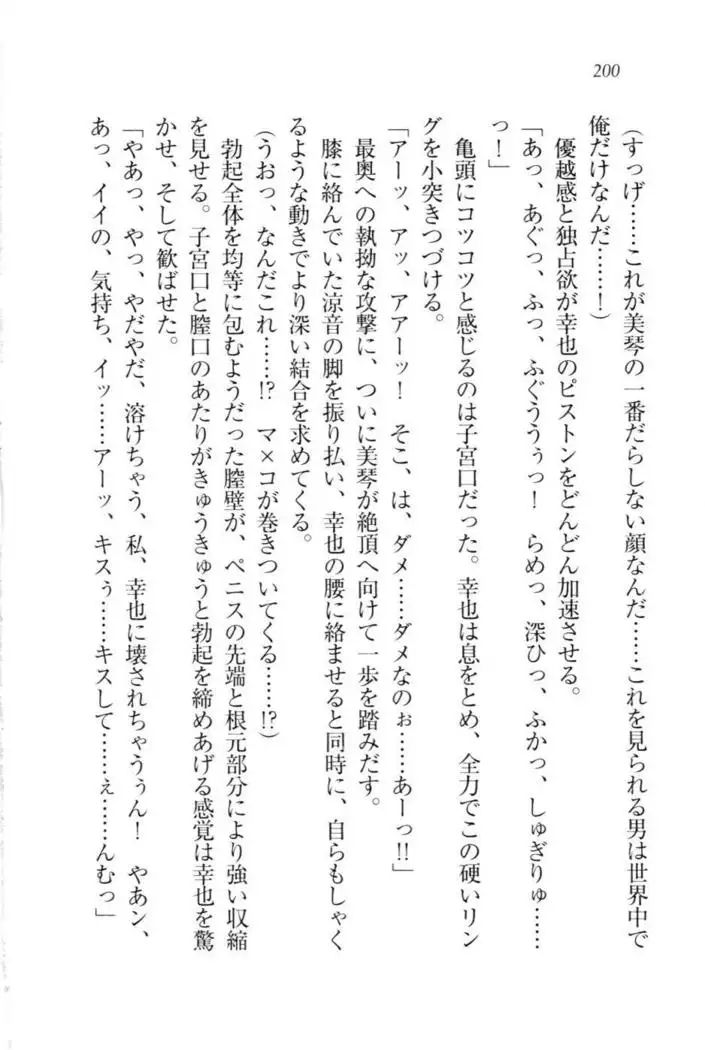 200
(すっげ……これが美琴の一番だらしない顔なんだ……これを見られる男は世界中で
俺だけなんだ……！)
優越感と独占欲が幸也のピストンをどんどん加速させる。
「あっ、あぐっ、ふっ、ふぐううぅっ！　らめっ、深ひっ、ふかっ、しゅぎりゅ……
っ！」
亀頭にコツコツと感じるのは子宮口だった。幸也は息をとめ、全力でこの硬いリン
グを小突きつづける。
「アーッ、アッ、アアーッ！　そこ、は、ダメ……ダメなのぉ……あーっ!!」
最奥への執拗な攻撃に、ついに美琴が絶頂へ向けて一歩を踏みだす。
膝に絡んでいた涼音の脚を振り払い、幸也の腰に絡ませると同時に、自らもしゃく
るような動きでより深い結合を求めてくる。
(うおっ、なんだこれ……!?　マ×コが巻きついてくる……!?)
勃起全体を均等に包むようだった膣壁が、ペニスの先端と根元部分により強い収縮
を見せる。子宮口と膣口のあたりがきゅうきゅうと勃起を締めあげる感覚は幸也を驚
かせ、そして歓ばせた。
「やあっ、やっ、やだやだ、溶けちゃう、私、幸也に壊されちゃうぅん！　やあン、
あっ、イイの、気持ち、イッ……アーッ、キスぅ……キスして……ぇ……んむっ」